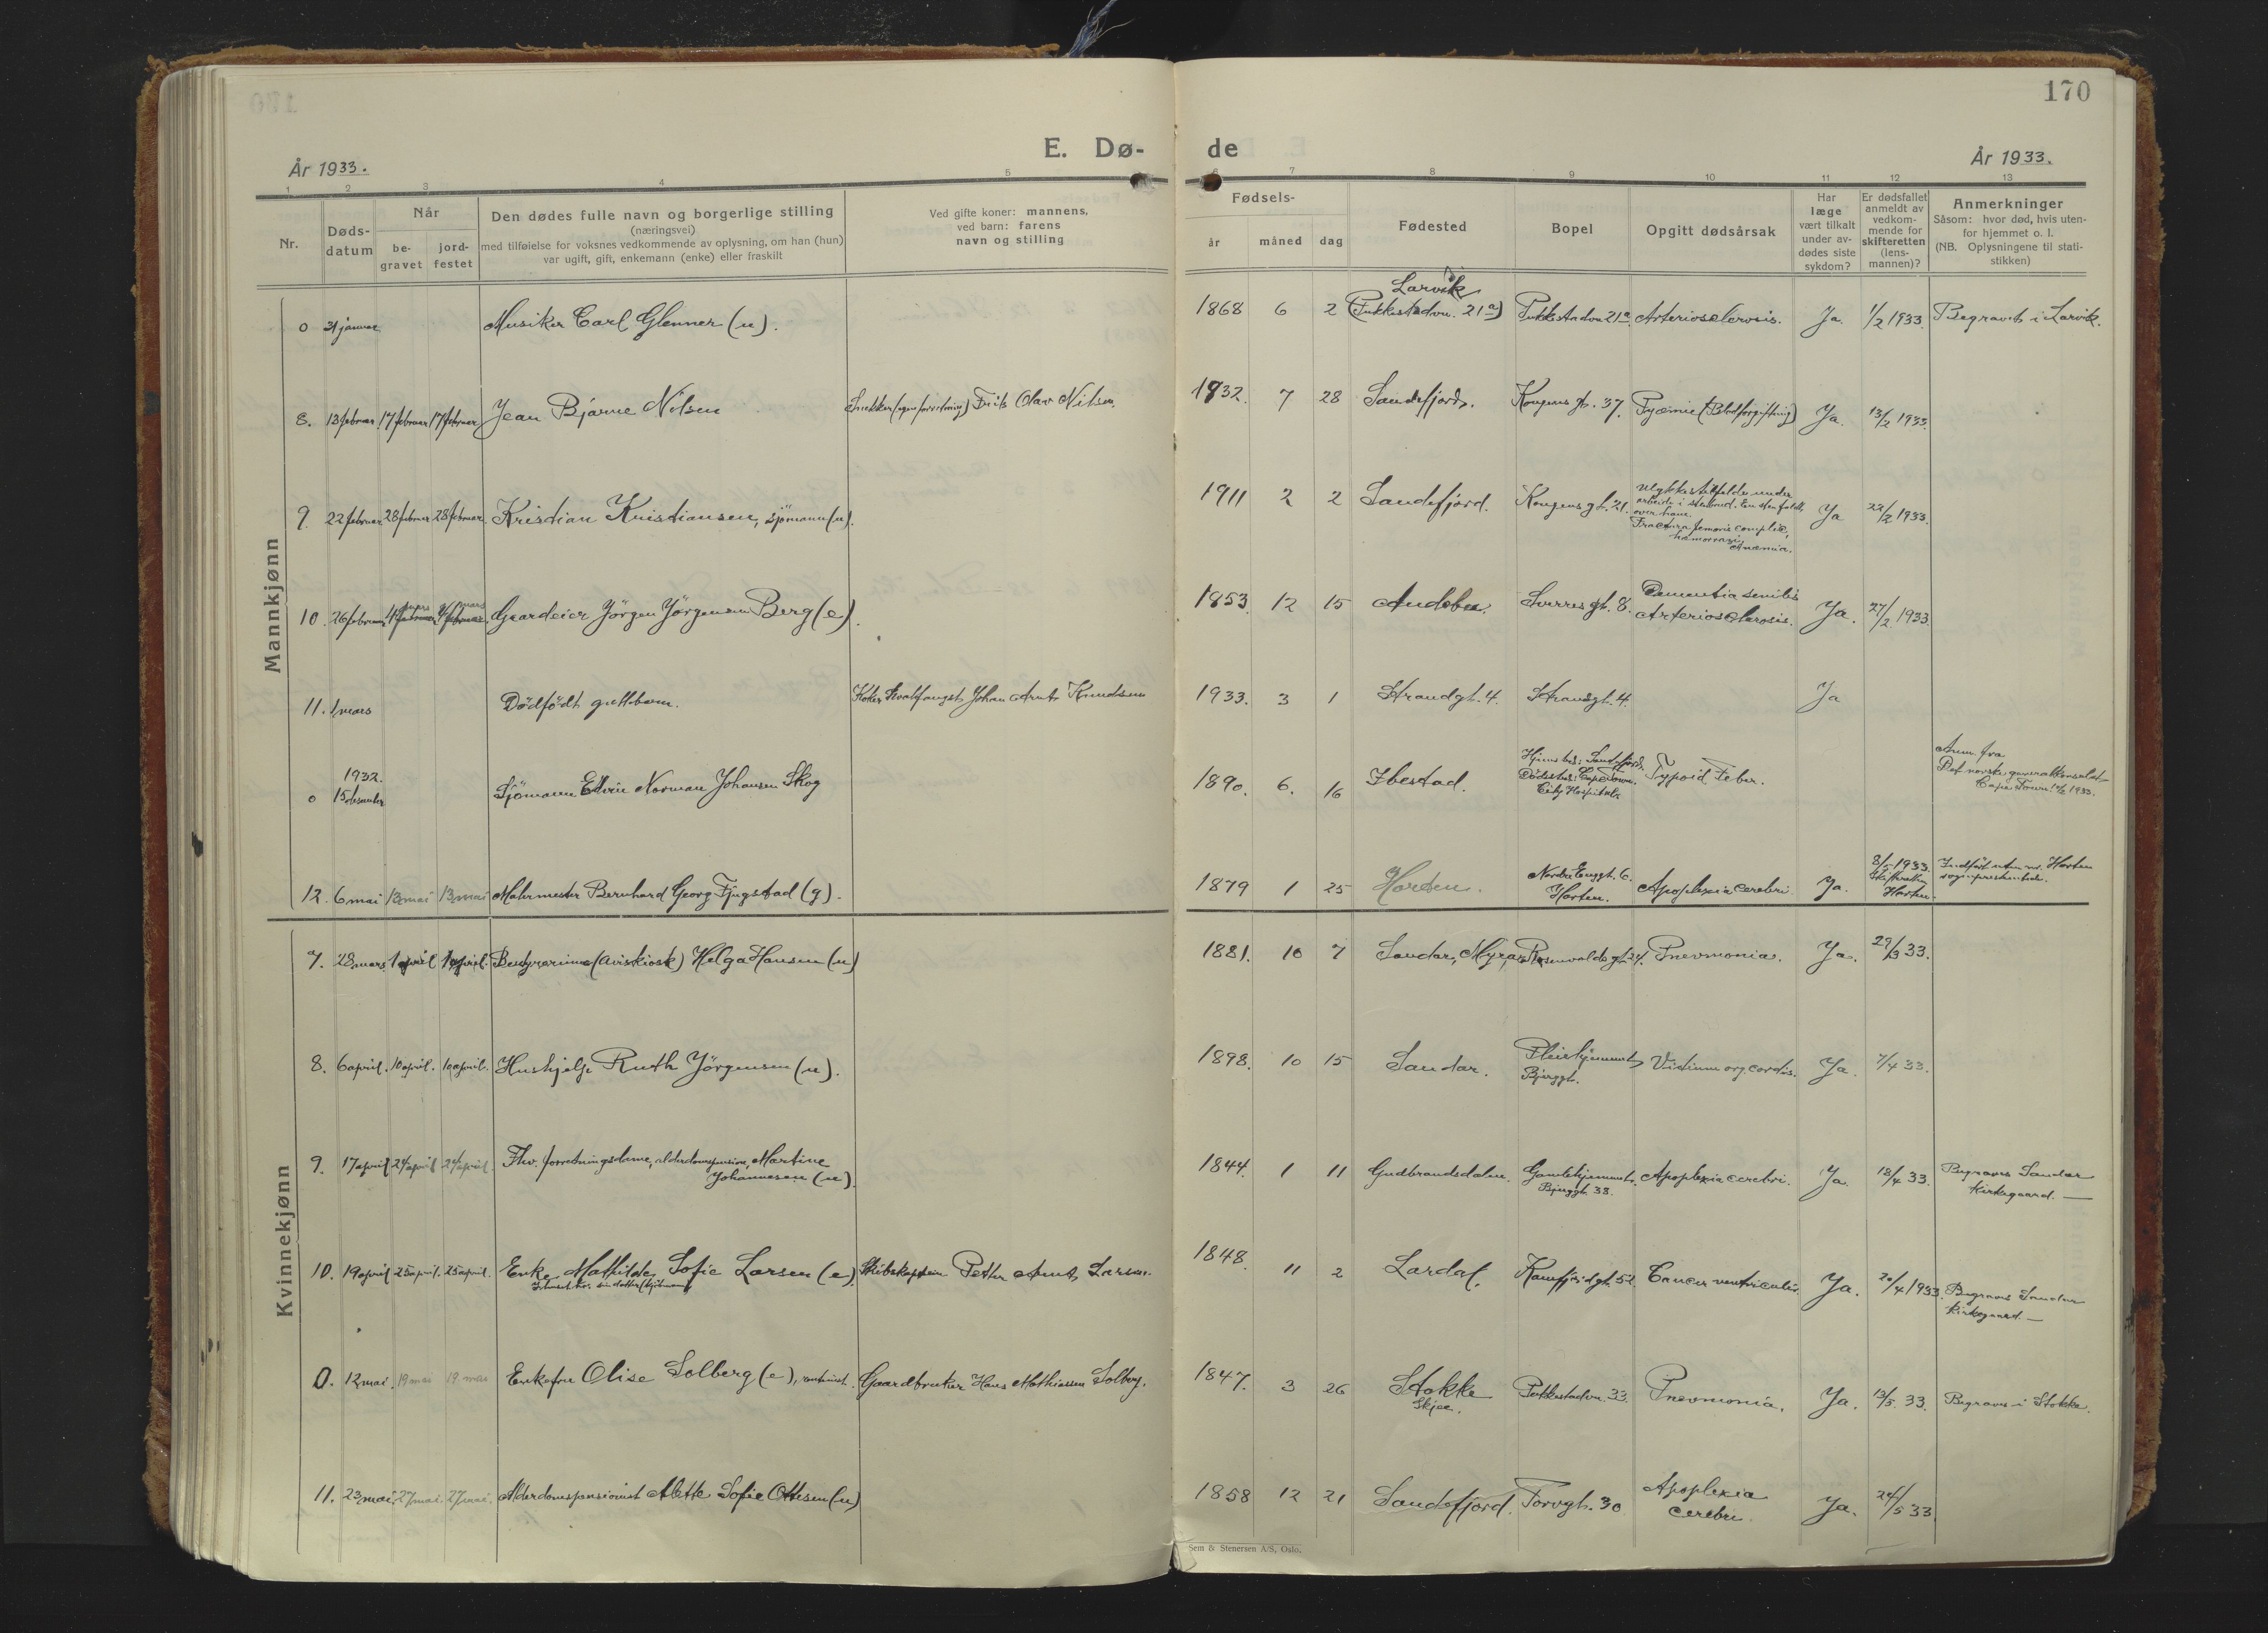 170
E. Dø- de
År 1933. År 1933.
1 2 3 4 5 6 7 8 9 10 11 12 13
Nr.
Døds-
datum
Når
be-
gravet
jord-
festet
Den dødes fulle navn og borgerlige stilling
(næringsvei)
med tilføielse for voksnes vedkommende av oplysning, om han (hun)
var ugift, gift, enkemann (enke) eller fraskilt
Ved gifte koner: mannens,
ved barn: farens
navn og stilling
Fødsels-
år måned dag
Fødested
Bopel
Opgitt dødsårsak
Har
læge
vært tilkalt
under av-
dødes siste
sykdom?
Er dødsfallet
anmeldt av
vedkom-
mende for
skifteretten
(lens-
mannen)?
Anmerkninger
Såsom: hvor død, hvis uten-
for hjemmet o. l.
(NB. Oplysningene til stati-
stikken)
Mannkjønn
Larvik
0 31 januar Musiker Carl Glenner (u). 1868 6 2 (Pukkestadvn. 21a) Pukkestadvn 21a Arteriosclerosis. Ja. 1/2 1933. Begravet i Larvik.
8. 13 februar 17 februar 17 februar Jean Bjarne Nilsen Snekker (egen forretning) Olav Nilsen. 1932. 7 28 Sandefjord. Kongens gt. 37. Pyæmie (Blodforgiftning) Ja. 13/2 1933.
9. 22 februar 28 februar 28 februar. Kristian Kristiansen, sjømann (u). 1911 2 2 Sandefjord. Kongens gt. 21. Ulykkestilfelde under
arbeide i stenbrud. En sten faldt
over ham.
Fractura femoris complic.,
hæmorragi,
Anæmia. Ja 22/2 1933.
10. 26 februar 4 mars mars Gaardeier Jörgen Jörgensen Berg (e). 1853 12 15 Andebu. Sverres gt. 8. Dementia senilis
Arteriosclerosis. Ja. 27/2 1933.
11. 1 mars Dödfödt guttebarn. Koker hvalfangst Johan Arnt Knudsen 1933. 3 1 Strandgt. 4. Strandgt. 4. Ja
1932.
0 15 desember Sjömann Edvin Norman Johansen Skog 1890. 6. 16 Ibestad. Hjemsted: Sandefjord.
Dødssted: Cape Town.
City Hospital. Typoid Feber. Anm. fra
Det norske generalkonsulat
Cape Town 1933.
12. 6 mai 13 mai 13 mai Malermester Bernhard Georg Fjugstad (g). 1879 1 25 Horten. Nordre Enggt. 6.
Horten. Apoplexia cerebri Ja. 8/5 1933.
Skifteretten
Horten. Indført uten nr. Horten
sogneprestembede.
Kvinnekjønn
7. 28 mars 1 april 1 april. Bestyrerinne (Aviskiosk) Helga Hansen (u) 1881. 10 7 Sandar, Myra Rosenvolds gt. 24. Pnevmonia. Ja. 29/3 33.
8. 6 april. 10 april. 10 april. Hushjelp Ruth Jörgensen (u). 1898. 10 15 Sandar. Pleiehjemmet
Bjerggt. Vitium org. cordis. Ja. 7/4 33.
9. 17 april 24 april 24 april Fhv. forretningsdame, alderdomspension, Martine
Johannesen (u). 1844. 1 11 Gudbrandsdalen. Gamlehjemmet.
Bjerggt. 38. Apoplexia cerebri. Ja. 18/4 33. Begraves Sandar
kirkegaard.
10. 19 april 25 april. 25 april. Enke Mathilde Sofie Larsen (e), Skibskaptein Petter Arnt Larsen. 1848. 11 2 Lardal. Kamfjordgt. 52. Cancer ventriculi. Ja. 20/4 1933. Begraves Sandar
kirkegaard.
0. 12 mai. 19 mai 19 mai Enkefru Olise Solberg (e), Gaardbruker Hans Mathiassen Solberg. 1847. 3 26 Stokke
Skjee. Pukkestadvn. 33. Pnevmonia. Ja. 13/5. 33. Begraves i Stokke.
11. 23 mai. 27 mai. 27 mai. Alderdomspensionist Alette Sofie Ottesen (u) 1858 12 21 Sandefjord. Torvgt. 30. Apoplexia
cerebri. Ja. 24/5 33.
Sem & Stenersen A/S, Oslo.